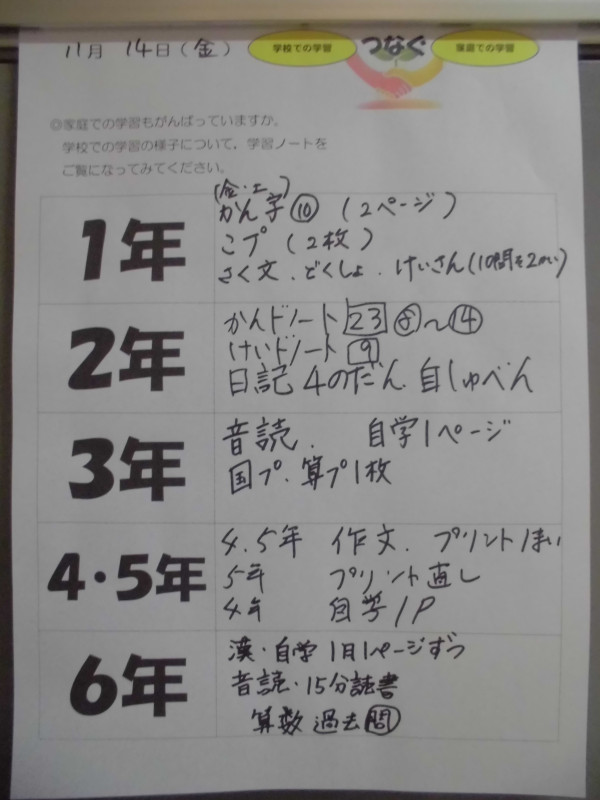 11月 14日(金)
学校での学習 つなぐ 家庭での学習
◎家庭での学習もがんばっていますか。
学校での学習の様子について,学習ノートを
ご覧になってみてください。
1年
(金・土)
かん字⑩ (2ページ)
こプ (2枚)
さく文.どくしょ.けいさん(10問を2かい)
2年
かんドノート 23 ⑧~⑭
けいドノート 9
日記 4のだん.自しゅべん
3年
音読. 自学1ページ
国プ.算プ1枚
4・5年
4.5年 作文.プリント1まい
5年 プリント直し
4年 自学1P
6年
漢・自学1日1ページずつ
音読・15分読書
算数 過去問